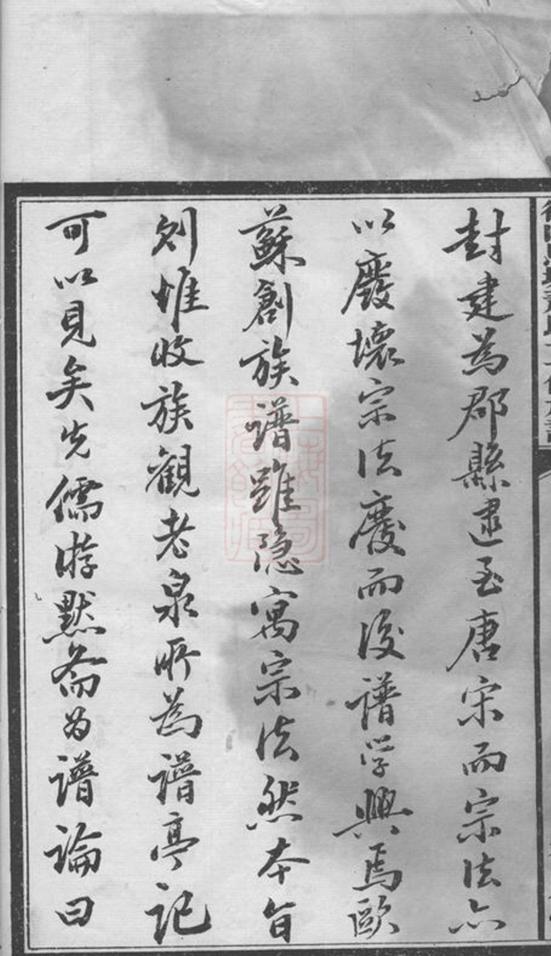 封建為郡縣逮至唐宋而宗法亦
以廢壞宗法廢而後譜学興焉歐
蘇創族譜雖隐寓宗法然本旨
則惟收族觀老泉所為譜亭記
可以見矣先儒游默齋為譜論曰